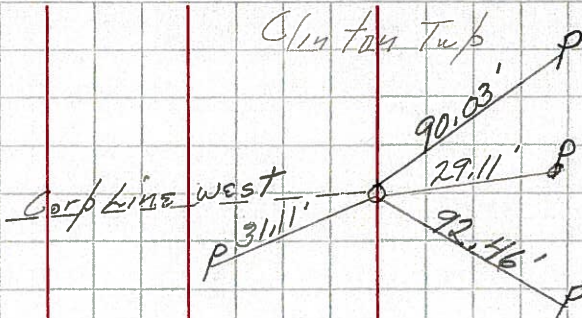 Clinton Twp
P
90.03'
29.11'
P
Corp Line west
31.11'
P
92.46'
P